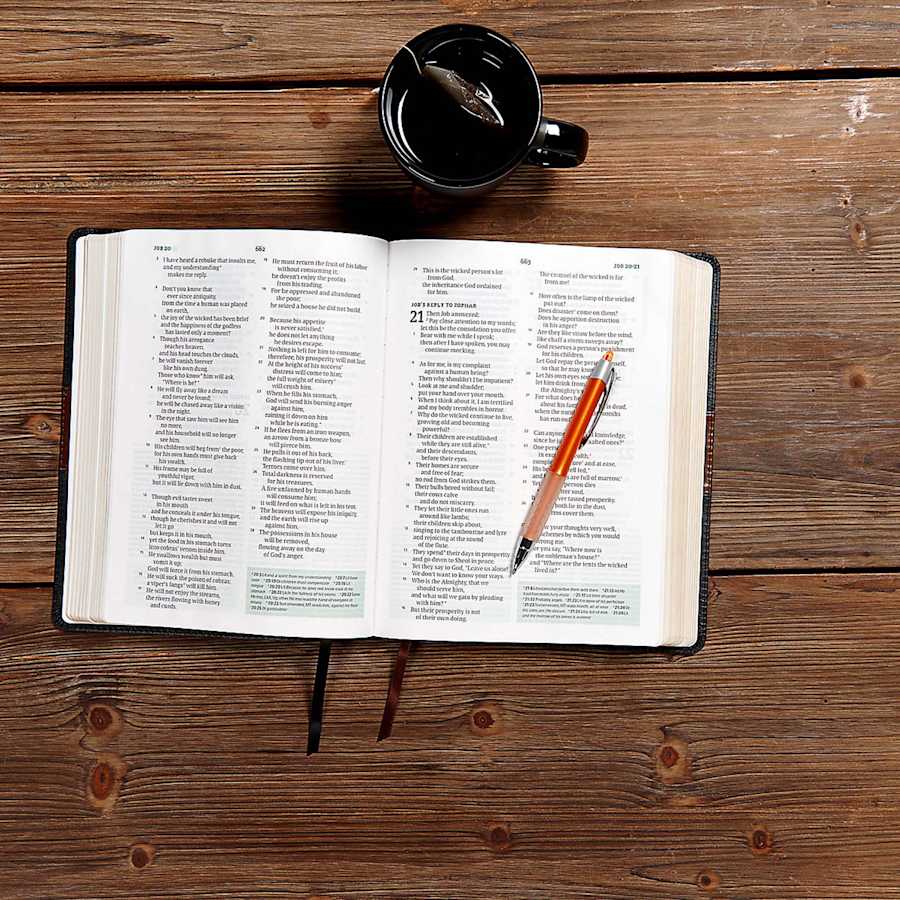 JOB 20
662
3 I have heard a rebuke that insults me,
and my understanding*
makes me reply.
4 Don't you know that
ever since antiquity,
from the time a human was placed
on earth,
5 the joy of the wicked has been brief
and the happiness of the godless
has lasted only a moment?
6 Though his arrogance
reaches heaven,
and his head touches the clouds,
7 he will vanish forever
like his own dung.
Those who know* him will ask,
"Where is he?"
8 He will fly away like a dream
and never be found;
he will be chased away like a vision
in the night.
9 The eye that saw him will see him
no more,
and his household will no longer
see him.
10 His children will beg from* the poor,
for his own hands must give back
his wealth.
11 His frame may be full of
youthful vigor,
but it will lie down with him in dust.
12 Though evil tastes sweet
in his mouth
and he conceals it under his tongue,
13 though he cherishes it and will not
let it go
but keeps it in his mouth,
14 yet the food in his stomach turns
into cobras' venom inside him.
15 He swallows wealth but must
vomit it up;
God will force it from his stomach.
16 He will suck the poison of cobras;
a viper's fangs* will kill him.
17 He will not enjoy the streams,
the rivers flowing with honey
and curds.
18 He must return the fruit of his labor
without consuming it;
he doesn't enjoy the profits
from his trading.
19 For he oppressed and abandoned
the poor;
he seized a house he did not build.
20 Because his appetite
is never satisfied,*
he does not let anything
he desires escape.
21 Nothing is left for him to consume;
therefore, his prosperity will not last.
22 At the height of his success*
distress will come to him;
the full weight of misery*
will crush him.
23 When he fills his stomach,
God will send his burning anger
against him,
raining it down on him
while he is eating.*
24 If he flees from an iron weapon,
an arrow from a bronze bow
will pierce him.
25 He pulls it out of his back,
the flashing tip out of his liver.*
Terrors come over him.
26 Total darkness is reserved
for his treasures.
A fire unfanned by human hands
will consume him;
it will feed on what is left in his tent.
27 The heavens will expose his iniquity,
and the earth will rise up
against him.
28 The possessions in his house
will be removed,
flowing away on the day
of God's anger.
663
JOB 20-21
29 This is the wicked person's lot
from God,
the inheritance God ordained
for him.
JOB'S REPLY TO ZOPHAR
21 Then Job answered:
2 Pay close attention to my words;
let this be the consolation you offer.
3 Bear with me while I speak;
then after I have spoken, you may
continue mocking.
4 As for me, is my complaint
against a human being?
Then why shouldn't I be impatient?
5 Look at me and shudder;
put your hand over your mouth.
6 When I think about it, I am terrified
and my body trembles in horror.
7 Why do the wicked continue to live,
growing old and becoming
powerful?
8 Their children are established
while they are still alive,*
and their descendants,
before their eyes.
9 Their homes are secure
and free of fear;
no rod from God strikes them.
10 Their bulls breed without fail;
their cows calve
and do not miscarry.
11 They let their little ones run
around like lambs;
their children skip about,
12 singing to the tambourine and lyre
and rejoicing at the sound
of the flute.
13 They spend* their days in prosperity
and go down to Sheol in peace.
14 Yet they say to God, "Leave us alone!
We don't want to know your ways.
15 Who is the Almighty, that we
should serve him,
and what will we gain by pleading
with him?"
16 But their prosperity is not
of their own doing.
The counsel of the wicked is far
from me!
17 How often is the lamp of the wicked
put out?
Does disaster* come on them?
Does he apportion destruction
in his anger?
18 Are they like straw before the wind,
like chaff a storm sweeps away?
19 God reserves a person's punishment
for his children.
Let God repay the person himself,
so that he may know
20 Let his own eyes see
let him drink from
the Almighty's
21 For what does he
about his family
has run out?
22 Can anyone knowledge,
since he
23 One person
completely and at ease,
24
25 Yet person dies
never tasted prosperity.
26 both lie in the dust,
worms cover them.
27 know your thoughts very well,
schemes by which you
would wrong me.
28 For you say, "Where now is
the nobleman's house?"
and "Where are the tents the wicked
lived in?"